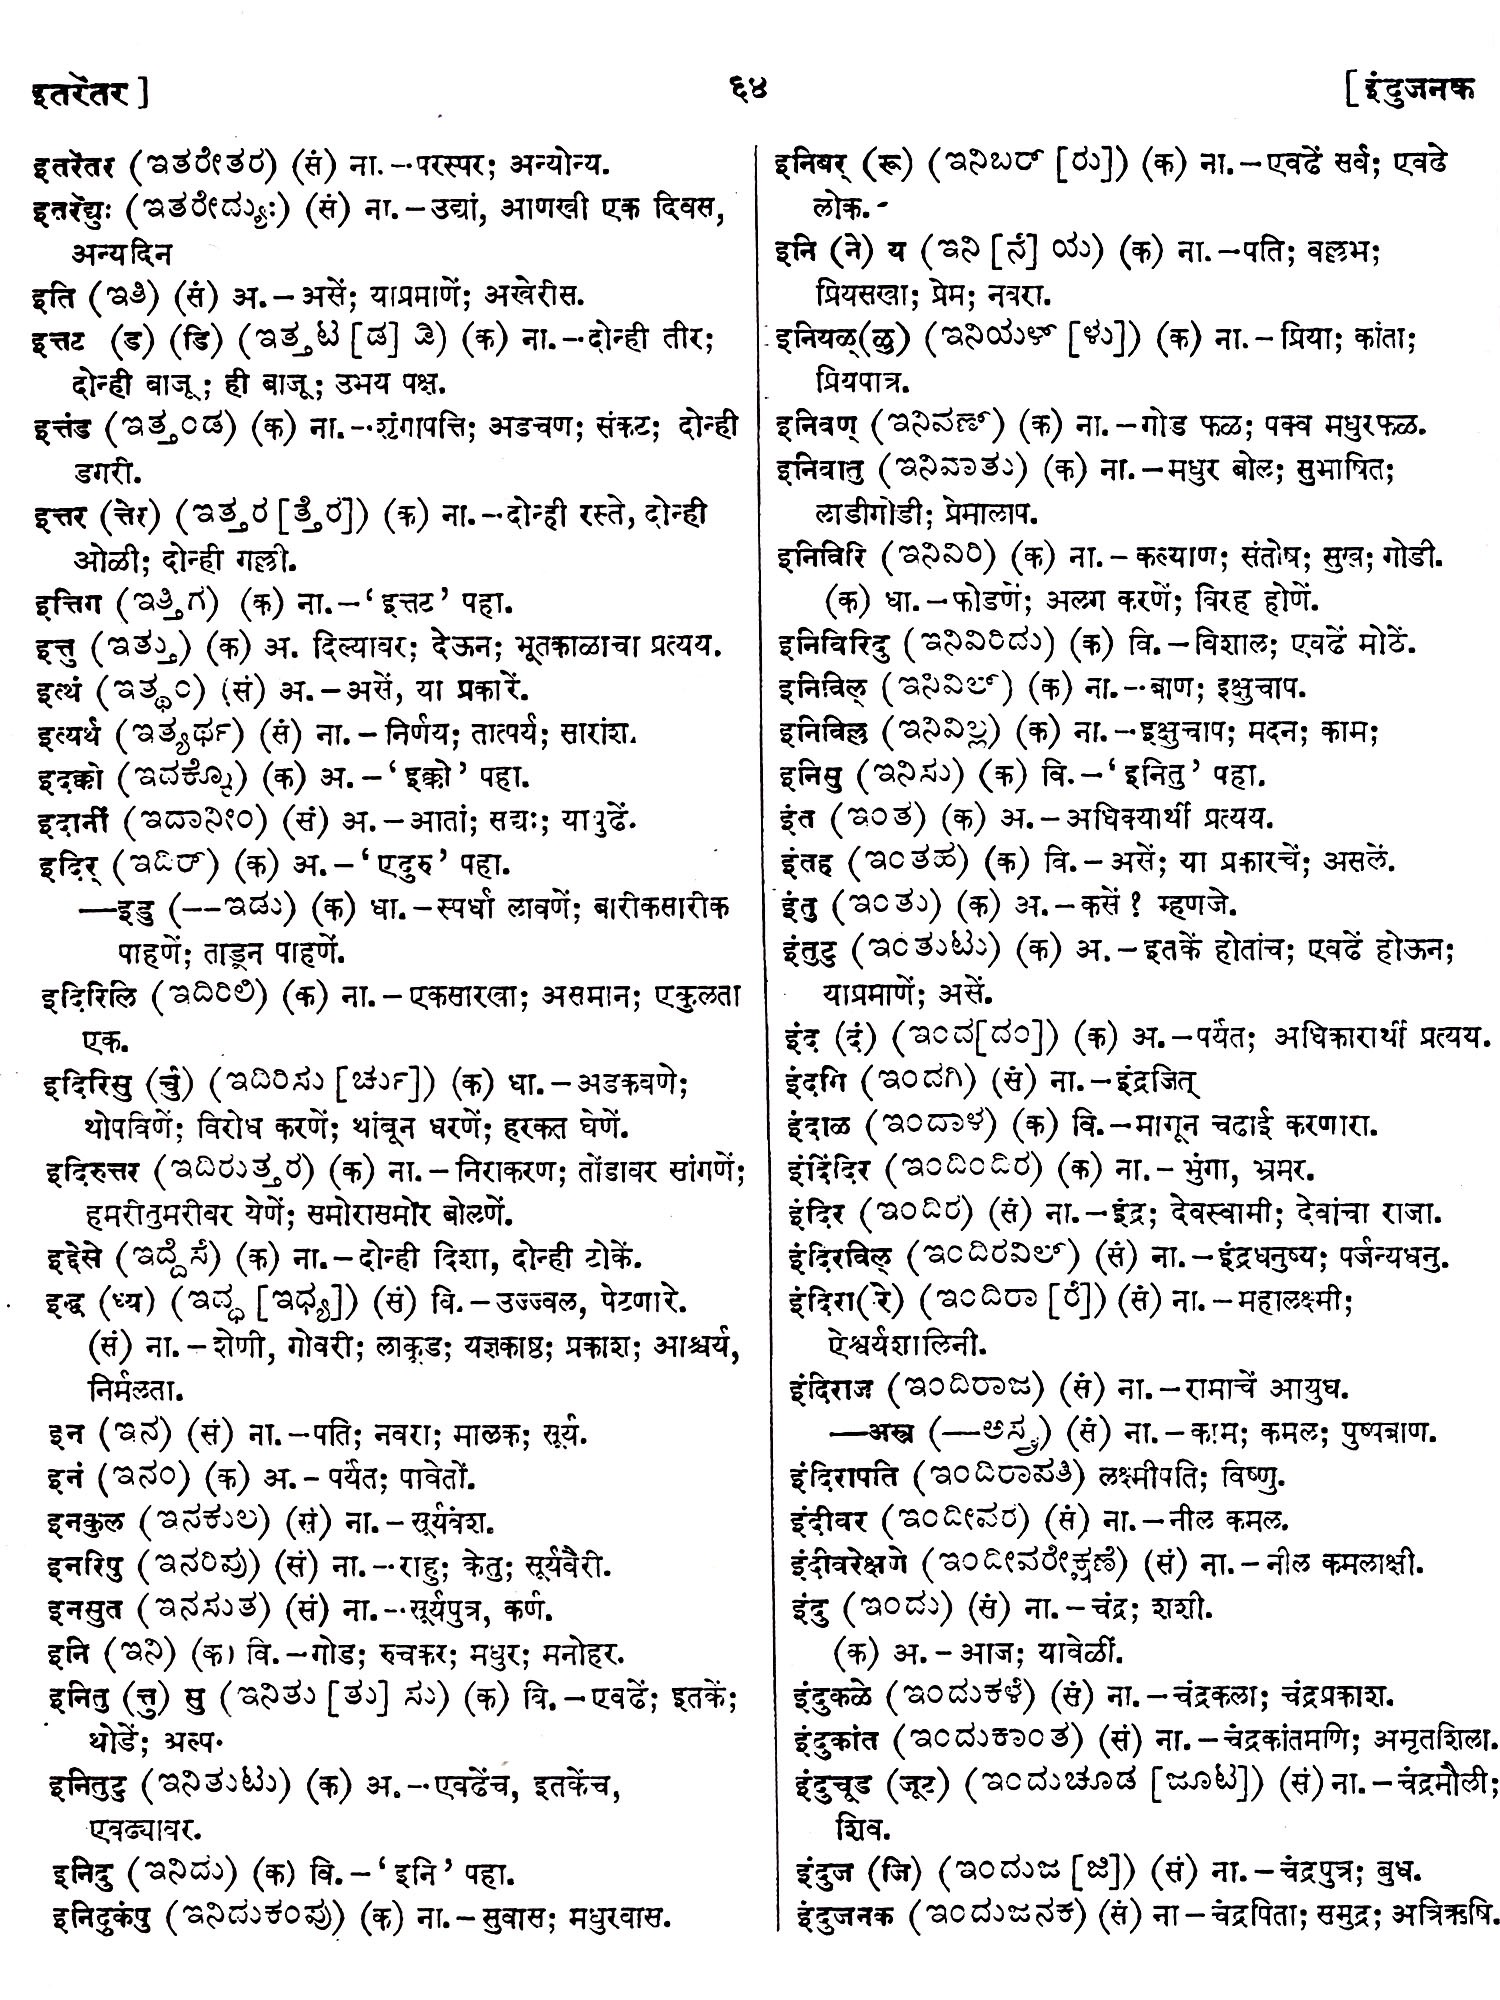 इतरेंतर ]
६४
[ इंदुजनक
इतरेंतर (ಇತರೇತರ) (सं) ना.–परस्पर; अन्योन्य.
इतरेंद्युः (ಇತರೇದ್ಯುಃ) (सं) ना.–उद्यां, आणखी एक दिवस,
अन्यदिन
इति (ಇತಿ) (सं) अ.–असें; याप्रमाणें; अखेरीस.
इत्तट (ड) (डि) (ಇತ್ತಟ [ಡ] ಡಿ) (क) ना.–दोन्ही तीर;
दोन्ही बाजू; ही बाजू; उभय पक्ष.
इत्तंड (ಇತ್ತಂಡ) (क) ना.–शृंगापत्ति; अडचण; संकट; दोन्ही
डगरी.
इत्तर (त्तेर) (ಇತ್ತರ [ತ್ತೆರ]) (क) ना.–दोन्ही रस्ते, दोन्ही
ओळी; दोन्ही गल्ली.
इत्तिग (ಇತ್ತಿಗ) (क) ना.–‘इत्तट’ पहा.
इत्तु (ಇತ್ತು) (क) अ. दिल्यावर; देऊन; भूतकाळाचा प्रत्यय.
इत्थं (ಇತ್ಥಂ) (सं) अ.–असें, या प्रकारें.
इत्यर्थ (ಇತ್ಯರ್ಥ) (सं) ना.–निर्णय; तात्पर्य; सारांश.
इदक्को (ಇದಕ್ಕೊ) (क) अ.–‘इक्को’ पहा.
इदानीं (ಇದಾನೀಂ) (सं) अ.–आतां; सद्यः; यापुढें.
इदिर् (ಇದಿರ್) (क) अ.–‘एदुरु’ पहा.
—इडु (––ಇಡು) (क) धा.–स्पर्धा लावणें; बारीकसारीक
पाहणें; ताडून पाहणें.
इदिरिलि (ಇದಿರಿಲಿ) (क) ना.–एकसारखा; असमान; एकुलता
एक.
इदिरिसु (र्चु) (ಇದಿರಿಸು [ರ್ಚು]) (क) धा.–अडकवणे;
थोपविणें; विरोध करणें; थांबून धरणें; हरकत घेणें.
इदिरुत्तर (ಇದಿರುತ್ತರ) (क) ना.–निराकरण; तोंडावर सांगणें;
हमरीतुमरीवर येणें; समोरासमोर बोलणें.
इद्देसे (ಇದ್ದೆಸೆ) (क) ना.–दोन्ही दिशा, दोन्ही टोकें.
इद्ध (ध्य) (ಇದ್ಧ [ಇಧ್ಯ]) (सं) वि.–उज्ज्वल, पेटणारे.
(सं) ना.–शेणी, गोवरी; लाकूड; यज्ञकाष्ठ; प्रकाश; आश्चर्य,
निर्मलता.
इन (ಇನ) (सं) ना.–पति; नवरा; मालक; सूर्य.
इनं (ಇನಂ) (क) अ.–पर्यंत; पावेतों.
इनकुल (ಇನಕುಲ) (सं) ना.–सूर्यवंश.
इनरिपु (ಇನರಿಪು) (सं) ना.–राहु; केतु; सूर्यवैरी.
इनसुत (ಇನಸುತ) (सं) ना.–सूर्यपुत्र, कर्ण.
इनि (ಇನಿ) (क) वि.–गोड; रुचकर; मधुर; मनोहर.
इनितु (त्तु) सु (ಇನಿತು [ತು] ಸು) (क) वि.–एवढें; इतकें;
थोडें; अल्प.
इनितुटु (ಇನಿತುಟು) (क) अ.–एवढेंच, इतकेंच,
एवढ्यावर.
इनिदु (ಇನಿದು) (क) वि.–‘इनि’ पहा.
इनिदुकंपु (ಇನಿದುಕಂಪು) (क) ना.–सुवास; मधुरवास.
इनिबर् (रू) (ಇನಿಬರ್ [ರು]) (क) ना.–एवढें सर्व; एवढे
लोक.
इनि (ने) य (ಇನಿ [ನೆ] ಯ) (क) ना.–पति; वल्लभ;
प्रियसखा; प्रेम; नवरा.
इनियळ्(ळु) (ಇನಿಯಳ್ [ಳು]) (क) ना.–प्रिया; कांता;
प्रियपात्र.
इनिवण् (ಇನಿವಣ್) (क) ना.–गोड फळ; पक्व मधुरफळ.
इनिवातु (ಇನಿವಾತು) (क) ना.–मधुर बोल; सुभाषित;
लाडीगोडी; प्रेमालाप.
इनिविरि (ಇನಿವಿರಿ) (क) ना.–कल्याण; संतोष; सुख; गोडी.
(क) धा.–फोडणें; अलग करणें; विरह होणें.
इनिविरिदु (ಇನಿವಿರಿದು) (क) वि.–विशाल; एवढें मोठें.
इनिविल् (ಇನಿವಿಲ್) (क) ना.–बाण; इक्षुचाप.
इनिविल्ल (ಇನಿವಿಲ್ಲ) (क) ना.–इक्षुचाप; मदन; काम;
इनिसु (ಇನಿಸು) (क) वि.–‘इनितु’ पहा.
इंत (ಇಂತ) (क) अ.–अधिक्यार्थी प्रत्यय.
इंतह (ಇಂತಹ) (क) वि.–असें; या प्रकारचें; असलें.
इंतु (ಇಂತು) (क) अ.–कसें? म्हणजे.
इंतुटु (ಇಂತುಟು) (क) अ.–इतकें होतांच; एवढें होऊन;
याप्रमाणें; असें.
इंद (दं) (ಇಂದ[ದಂ]) (क) अ.–पर्यंत; अधिकारार्थी प्रत्यय.
इंदगि (ಇಂದಗಿ) (सं) ना.–इंद्रजित्
इंदाळ (ಇಂದಾಳ) (क) वि.–मागून चढाई करणारा.
इंदिंदिर (ಇಂದಿಂದಿರ) (क) ना.–भुंगा, भ्रमर.
इंदिर (ಇಂದಿರ) (सं) ना.–इंद्र; देवस्वामी; देवांचा राजा.
इंदिरविल् (ಇಂದಿರವಿಲ್) (सं) ना.–इंद्रधनुष्य; पर्जन्यधनु.
इंदिरा(रे) (ಇಂದಿರಾ [ರೆ]) (सं) ना.–महालक्ष्मी;
ऐश्वर्यशालिनी.
इंदिराज (ಇಂದಿರಾಜ) (सं) ना.–रामाचें आयुध.
—अस्त्र (—ಅಸ್ತ್ರ) (सं) ना.–काम; कमल; पुष्पबाण.
इंदिरापति (ಇಂದಿರಾಪತಿ) लक्ष्मीपति; विष्णु.
इंदीवर (ಇಂದೀವರ) (सं) ना.–नील कमल.
इंदीवरेक्षणे (ಇಂದೀವರೇಕ್ಷಣೆ) (सं) ना.–नील कमलाक्षी.
इंदु (ಇಂದು) (सं) ना.–चंद्र; शशी.
(क) अ.–आज; यावेळीं.
इंदुकळे (ಇಂದುಕಳೆ) (सं) ना.–चंद्रकला; चंद्रप्रकाश.
इंदुकांत (ಇಂದುಕಾಂತ) (सं) ना.–चंद्रकांतमणि; अमृतशिला.
इंदुचूड (जूट) (ಇಂದುಚೂಡ [ಜೂಟ]) (सं) ना.–चंद्रमौली;
शिव.
इंदुज (जि) (ಇಂದುಜ [ಜಿ]) (सं) ना.–चंद्रपुत्र; बुध.
इंदुजनक (ಇಂದುಜನಕ) (सं) ना–चंद्रपिता; समुद्र; अत्रिऋषि.